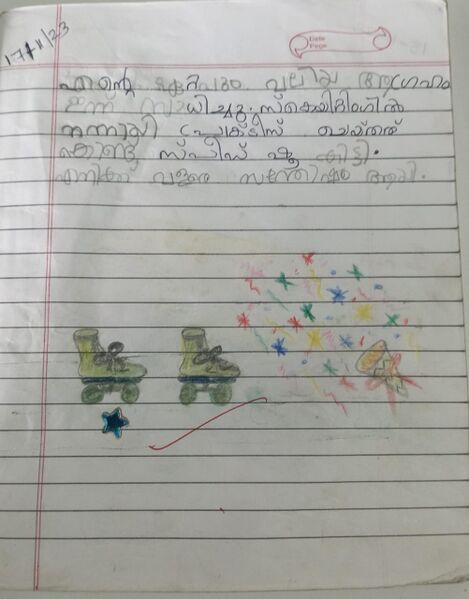 17/11/23
Date
Page
എന്റെ ഏറ്റവും വലിയ ആഗ്രഹം
ഇന്ന് സാധിച്ചു. സ്കെയിറ്റിംഗിൽ
നന്നായി പ്രാക്ടീസ് ചെയ്തത്
കൊണ്ടു സ്പീഡ് ഷൂ കിട്ടി.
എനിക്ക് വളരെ സന്തോഷം ആയി.